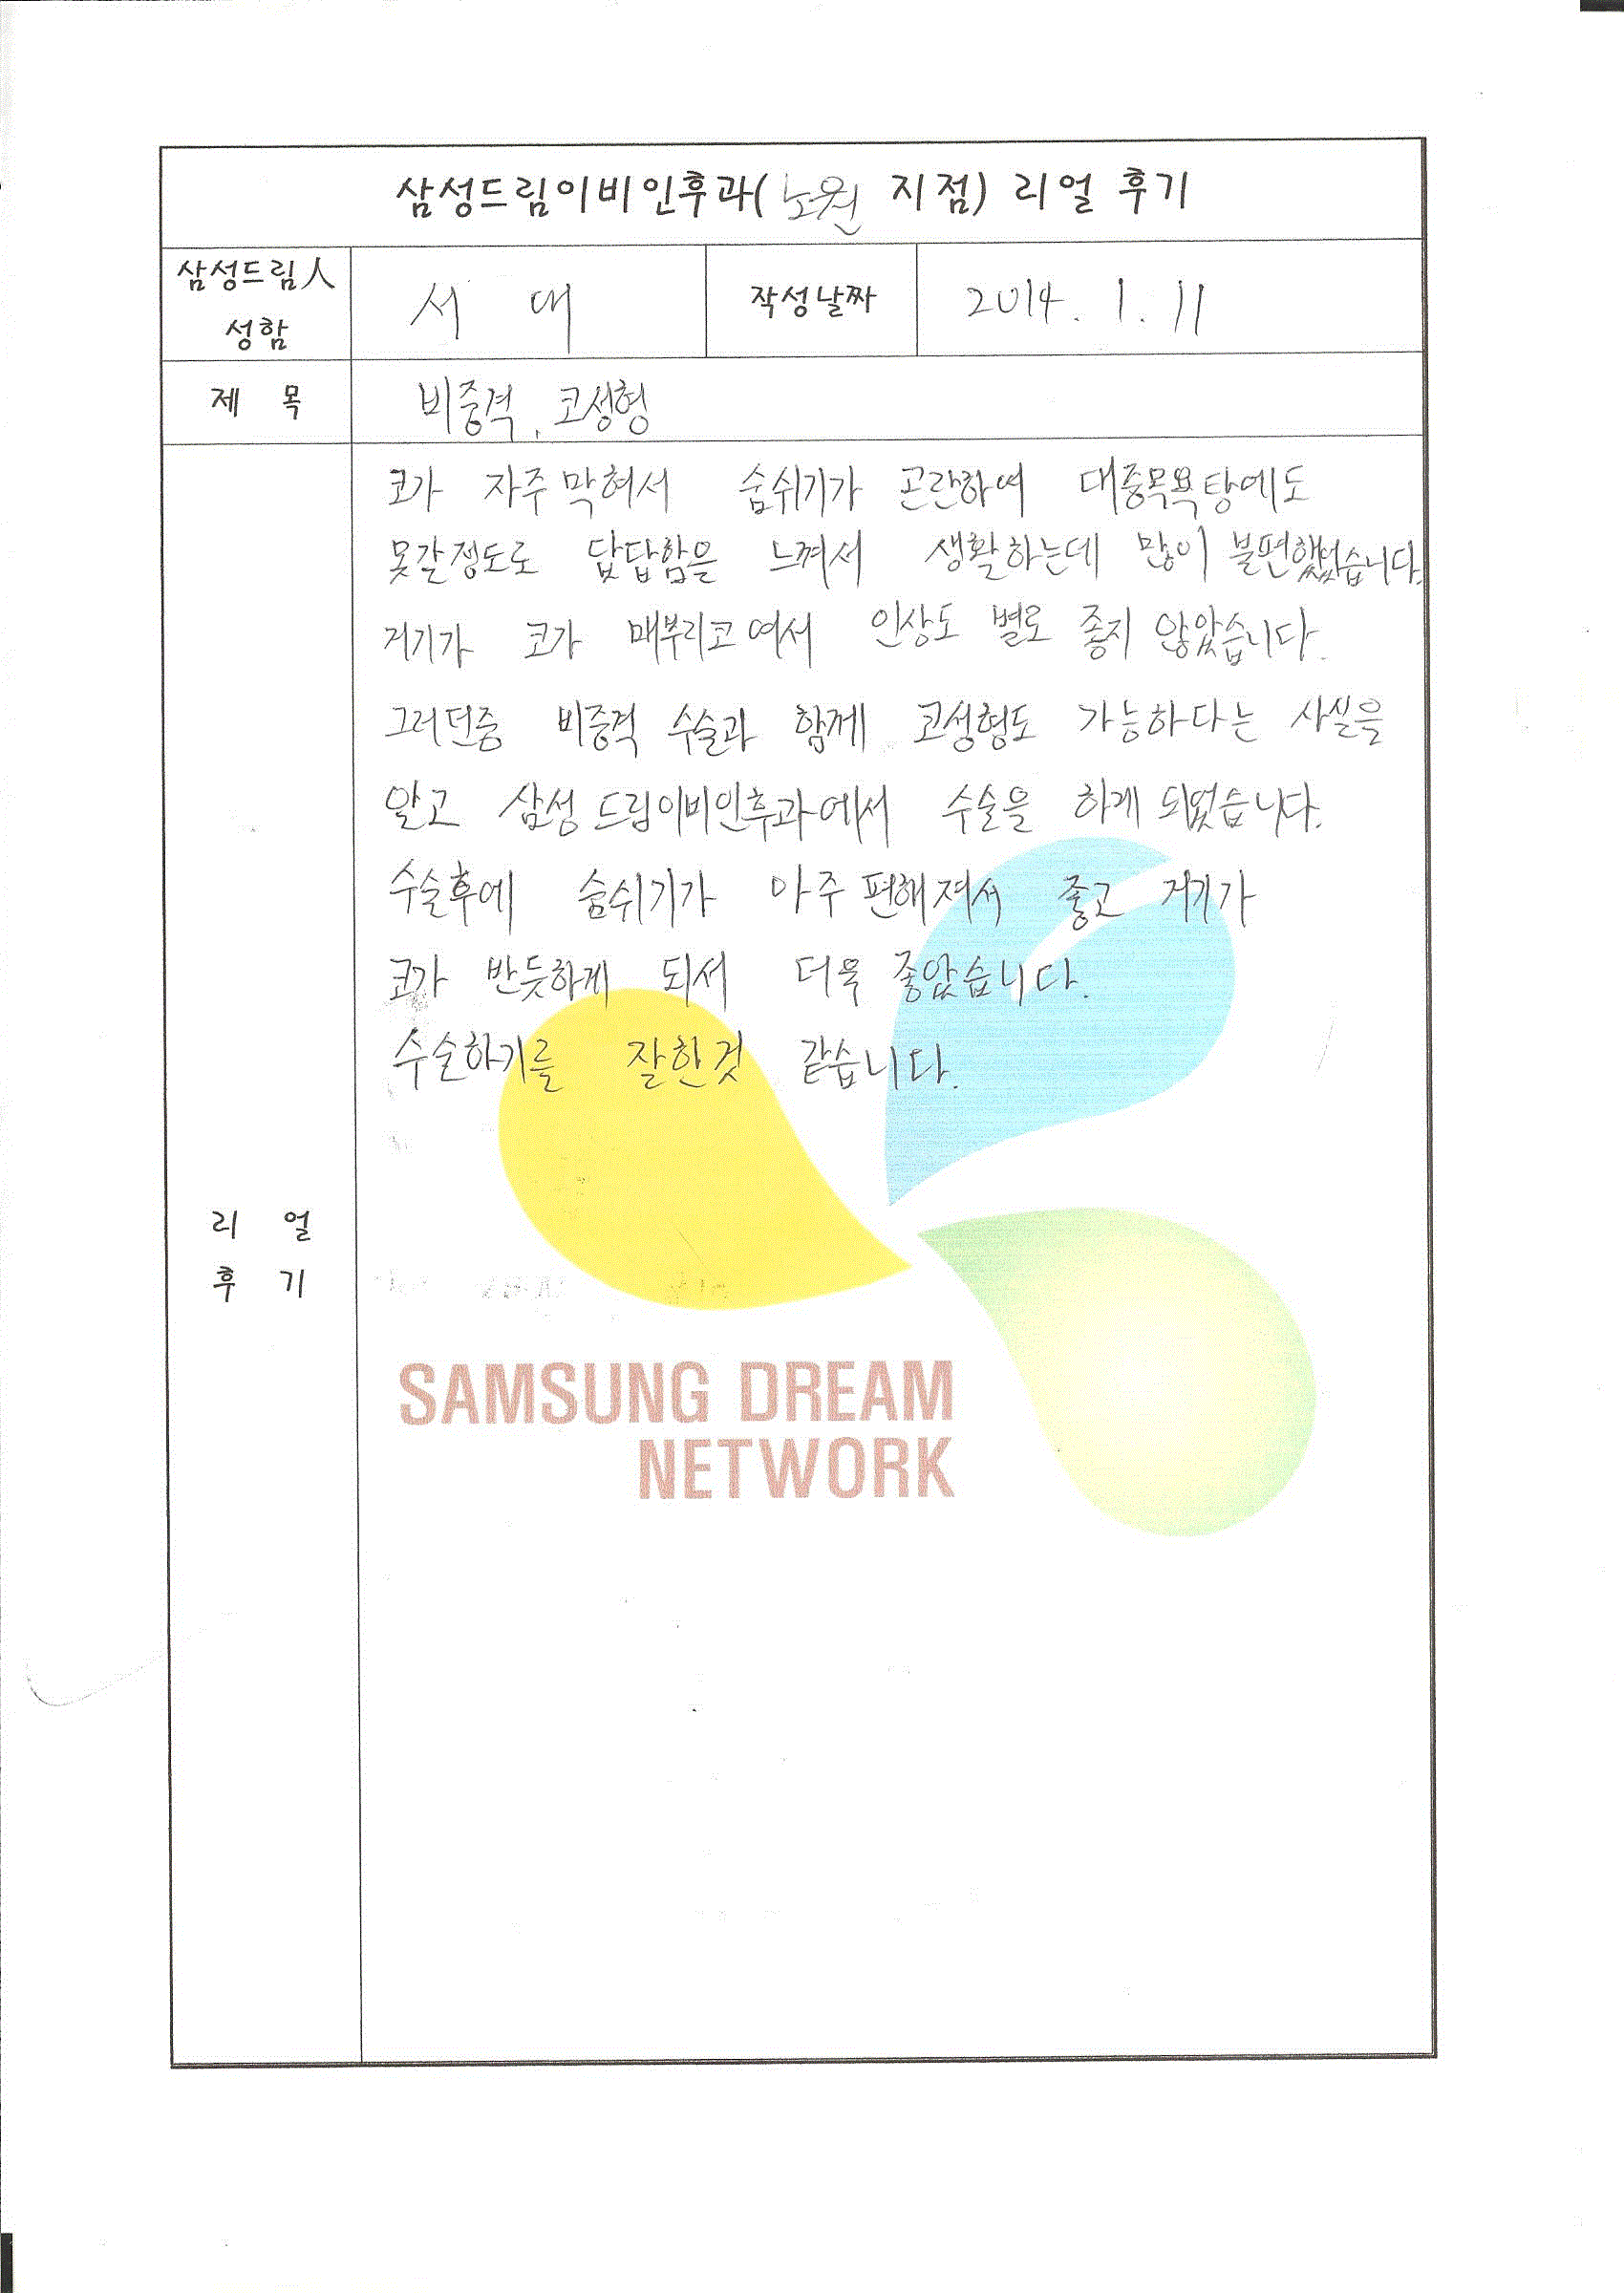 삼성드림이비인후과(노원 지점) 리얼 후기
삼성드림人 성함 서 대 작성날짜 2014. 1. 11
제 목 비중격, 코성형
코가 자주 막혀서 숨쉬기가 곤란하여 대중목욕탕에도
못갈정도로 답답함을 느껴서 생활하는데 많이 불편했었습니다.
거기가 코가 매부리코여서 인상도 별로 좋지 않았습니다.
그러던중 비중격 수술과 함께 코성형도 가능하다는 사실을
알고 삼성드림이비인후과에서 수술을 하게 되었습니다.
수술후에 숨쉬기가 아주 편해져서 좋고 거기가
코가 반듯하게 되서 더욱 좋았습니다.
수술하기를 잘한것 같습니다.
리 얼
후 기
SAMSUNG DREAM
NETWORK